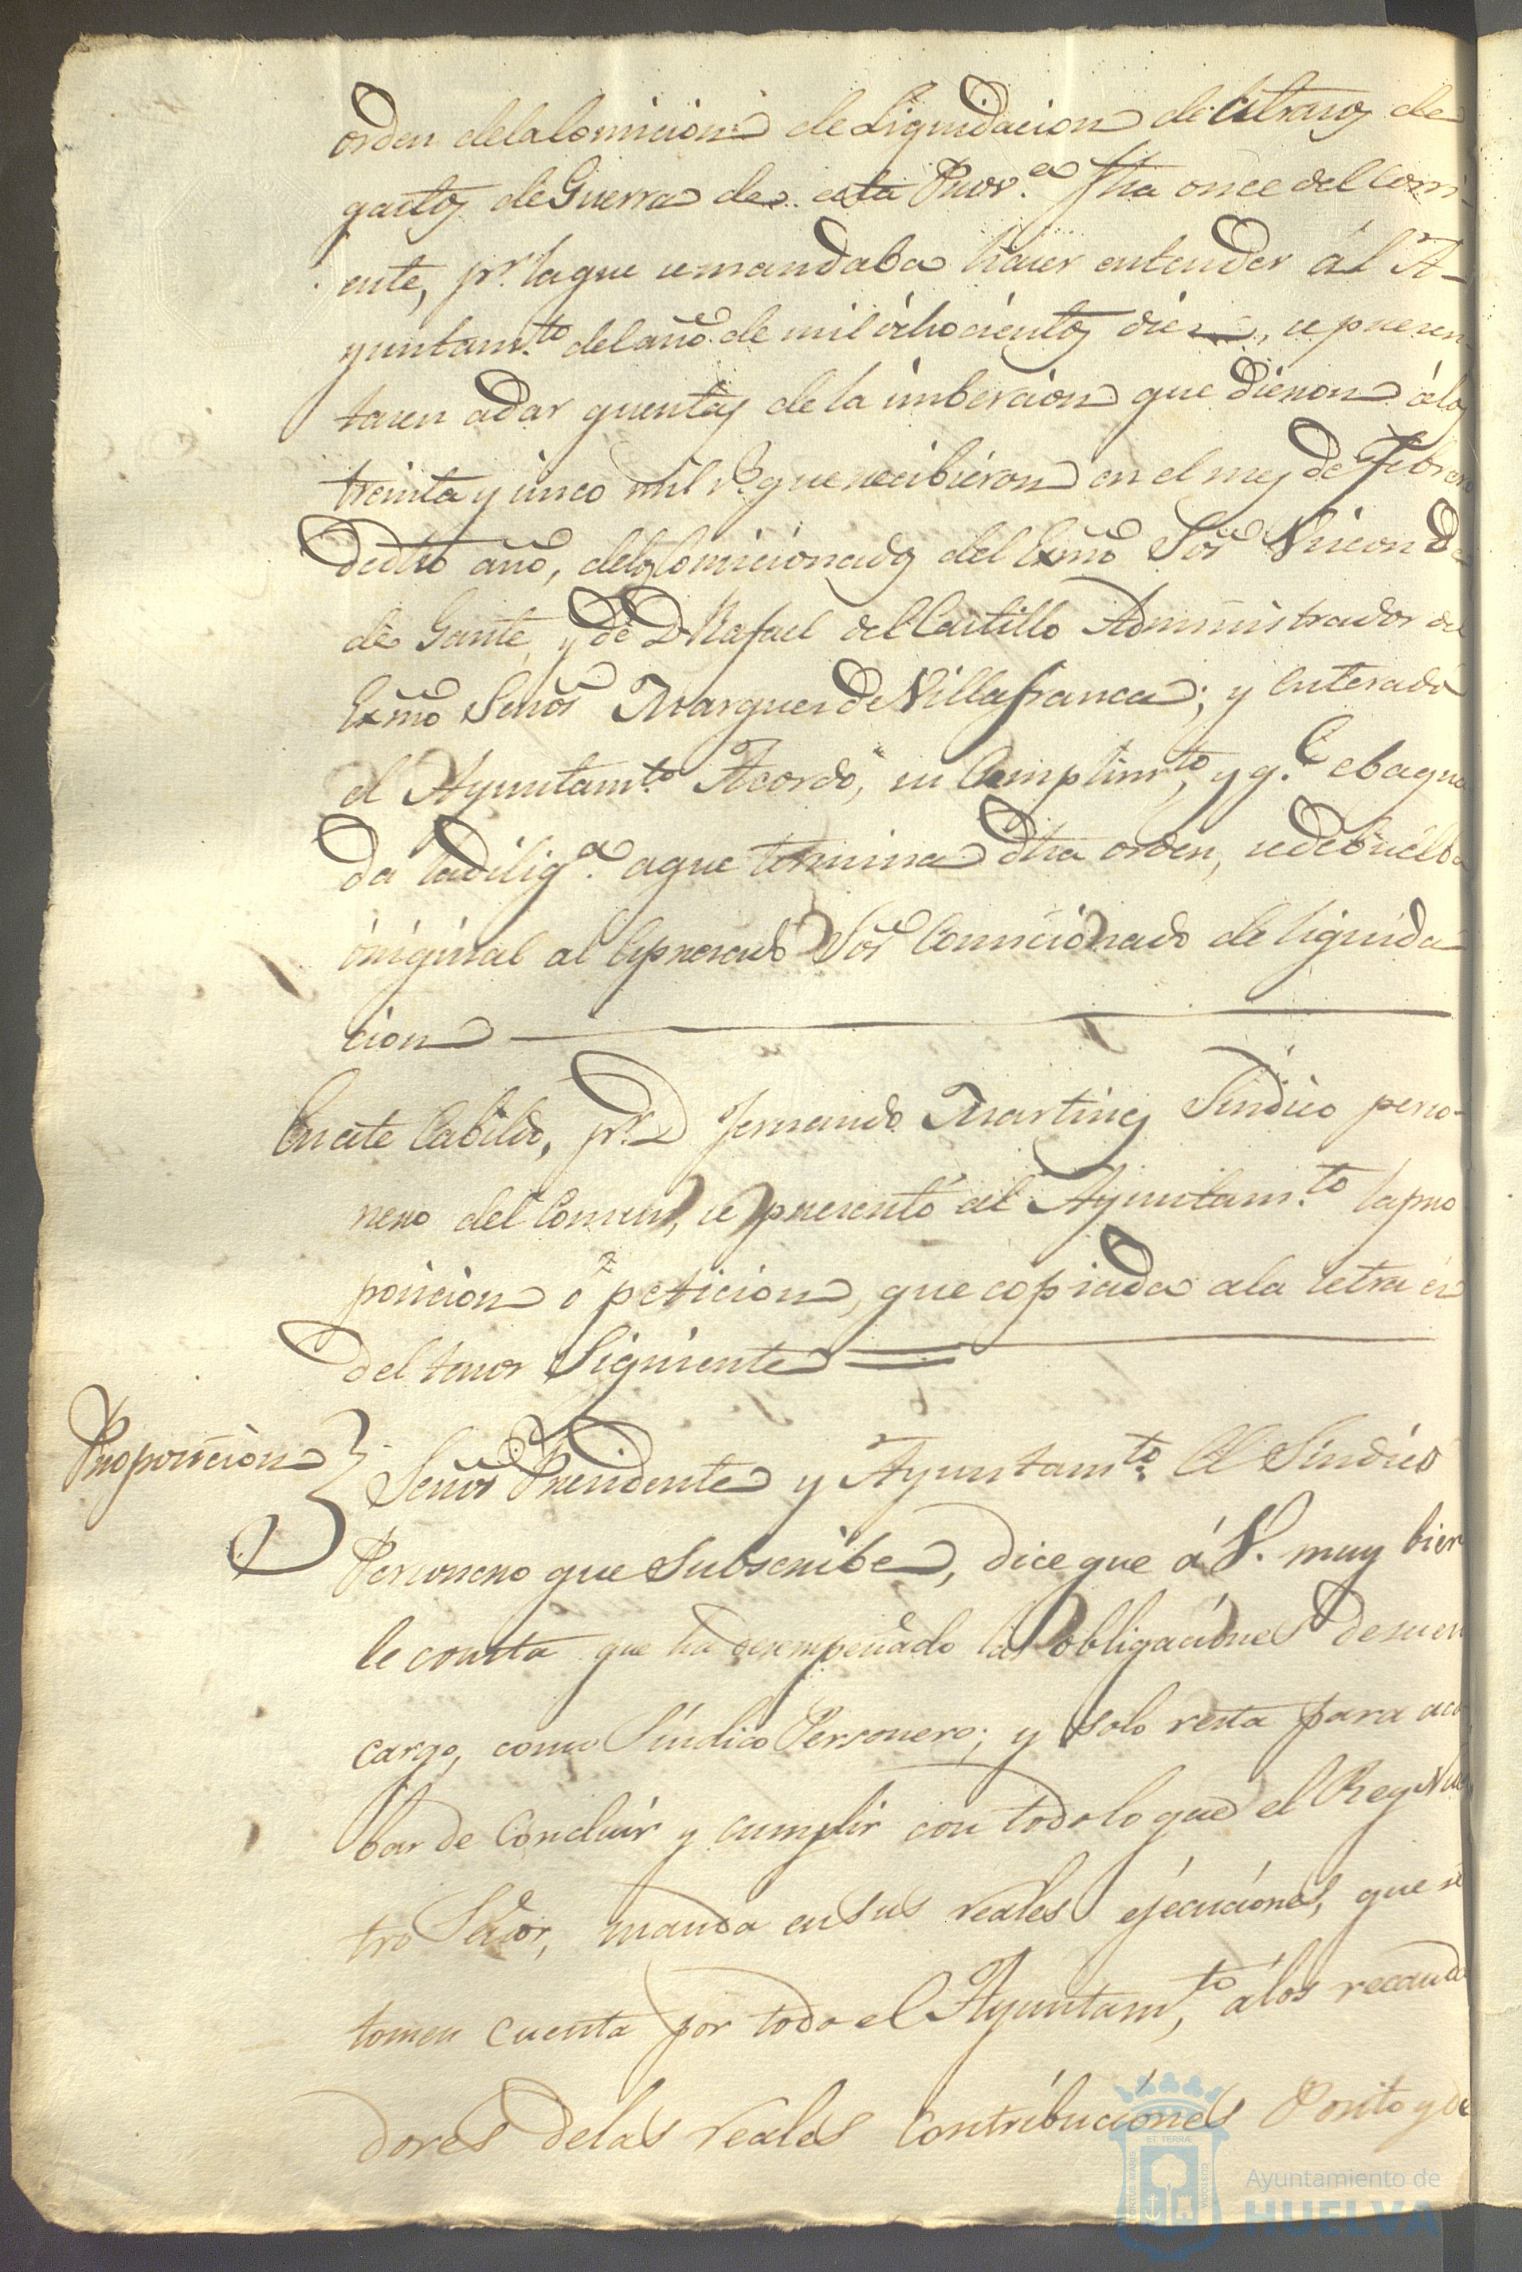 orden dela Comicion de Liquidacion de Atrasos de
gastos de Guerra de esta Prov.ª fha once del Corri-
ente, pr. la que se mandaba hacer entender ál A-
yuntam.to del año de mil óchocientos diez, se presen
tasen adar quentas de la imbercion que dieron álos
treinta y cinco mil r.s que recibieron en el mes de Febrero
de dho año, delos Comicionados del Exmo Sor Vicond
de Gante, y de D Rafael del Castillo Administrador del
Exmo Señor Marques de Villafranca; y enterado
el Ayuntam.to Acordó, su Cumplim.to, y q.e ebaqua
da la dilig.ª aque termina dha orden, se debuelba
original al Expresado Sor Comicionado de liquida
cion
En este Cabildo, pr. D Fernando Martinez Sindico perso-
nero del Comun, se presentó al Ayuntam.to la pro
posicion ó peticion, que copiada ala letra es
del tenor Siguiente
Proposicion
Señor Presidente y Ayuntam.to El Sindico
Personero que Subscribe, dice que á V. muy bien
le consta que ha desempeñado las obligaciónes de su en
cargo, como Síndico Personero; y solo resta para aca
bar de Concluir y cumplir con todo lo que el Rey Nues
tro Señor, manda en sus reales ejecuciónes, que se
tomen cuenta por todo el Ayuntam,to álos recauda
dores delas reales Contribuciónes Posito y de
ET TERRÆ
Ayuntamiento de
HUELVA